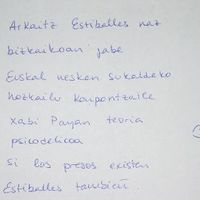 Arkaitz Estiballes naz
bizkaikoan jabe
Euskal nesken sukaldeko
hozkailu konpontzaile
xabi Payan teoria
psicodelicoa
si los presos existen
Estiballes tambien.